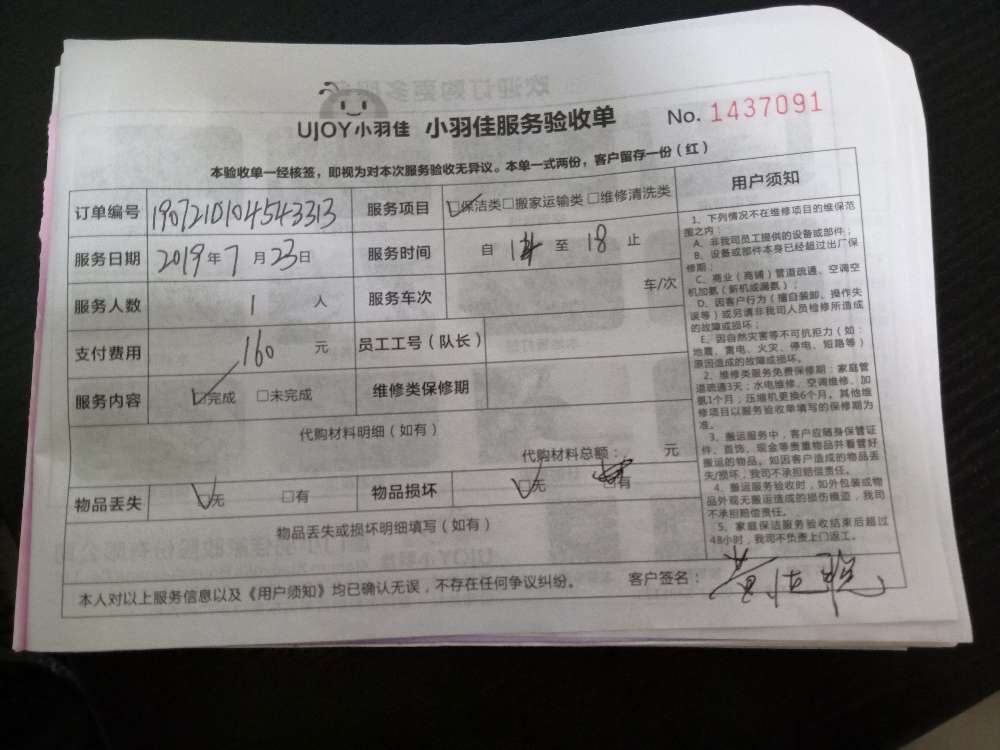 UJOY小羽佳 小羽佳服务验收单 No. 1437091
本验收单一经核签，即视为对本次服务验收无异议。本单一式两份，客户留存一份（红）
订单编号 1907210104543313 服务项目 ☑保洁类□搬家运输类□维修清洗类
服务日期 2019年7月23日 服务时间 自 14 至 18 止
服务人数 1 人 服务车次 车/次
支付费用 160 元 员工工号（队长）
服务内容 ☑完成 □未完成 维修类保修期
代购材料明细（如有）
代购材料总额： 元
物品丢失 ☑无 □有 物品损坏 ☑无 □有
物品丢失或损坏明细填写（如有）
本人对以上服务信息以及《用户须知》均已确认无误，不存在任何争议纠纷。 客户签名：
用户须知
1、下列情况不在维修项目的维保范
围之内：
A、非我司员工提供的设备或部件；
B、设备或部件本身已经超过出厂保
修期；
C、商业（商铺）管道疏通、空调空
机加氨（新机或漏氨）；
D、因客户行为（擅自装卸、操作失
误等）或另请非我司人员检修所造成
的故障或损坏；
E、因自然灾害等不可抗拒力（如：
地震、雷电、火灾、停电、短路等）
原因造成的故障或损坏。
2、维修类服务免费保修期：家庭管
道疏通3天；水电维修、空调维修、加
氨1个月；压缩机更换6个月。其他维
修项目以服务验收单填写的保修期为
准。
3、搬运服务中，客户应随身保管证
件、首饰、现金等贵重物品并看管好
搬运的物品。如因客户造成的物品丢
失/损坏，我司不承担赔偿责任。
4、搬运服务验收时，如外包装或物
品外观无搬运造成的损伤痕迹，我司
不承担赔偿责任。
5、家庭保洁服务验收结束后超过
48小时，我司不负责上门返工。